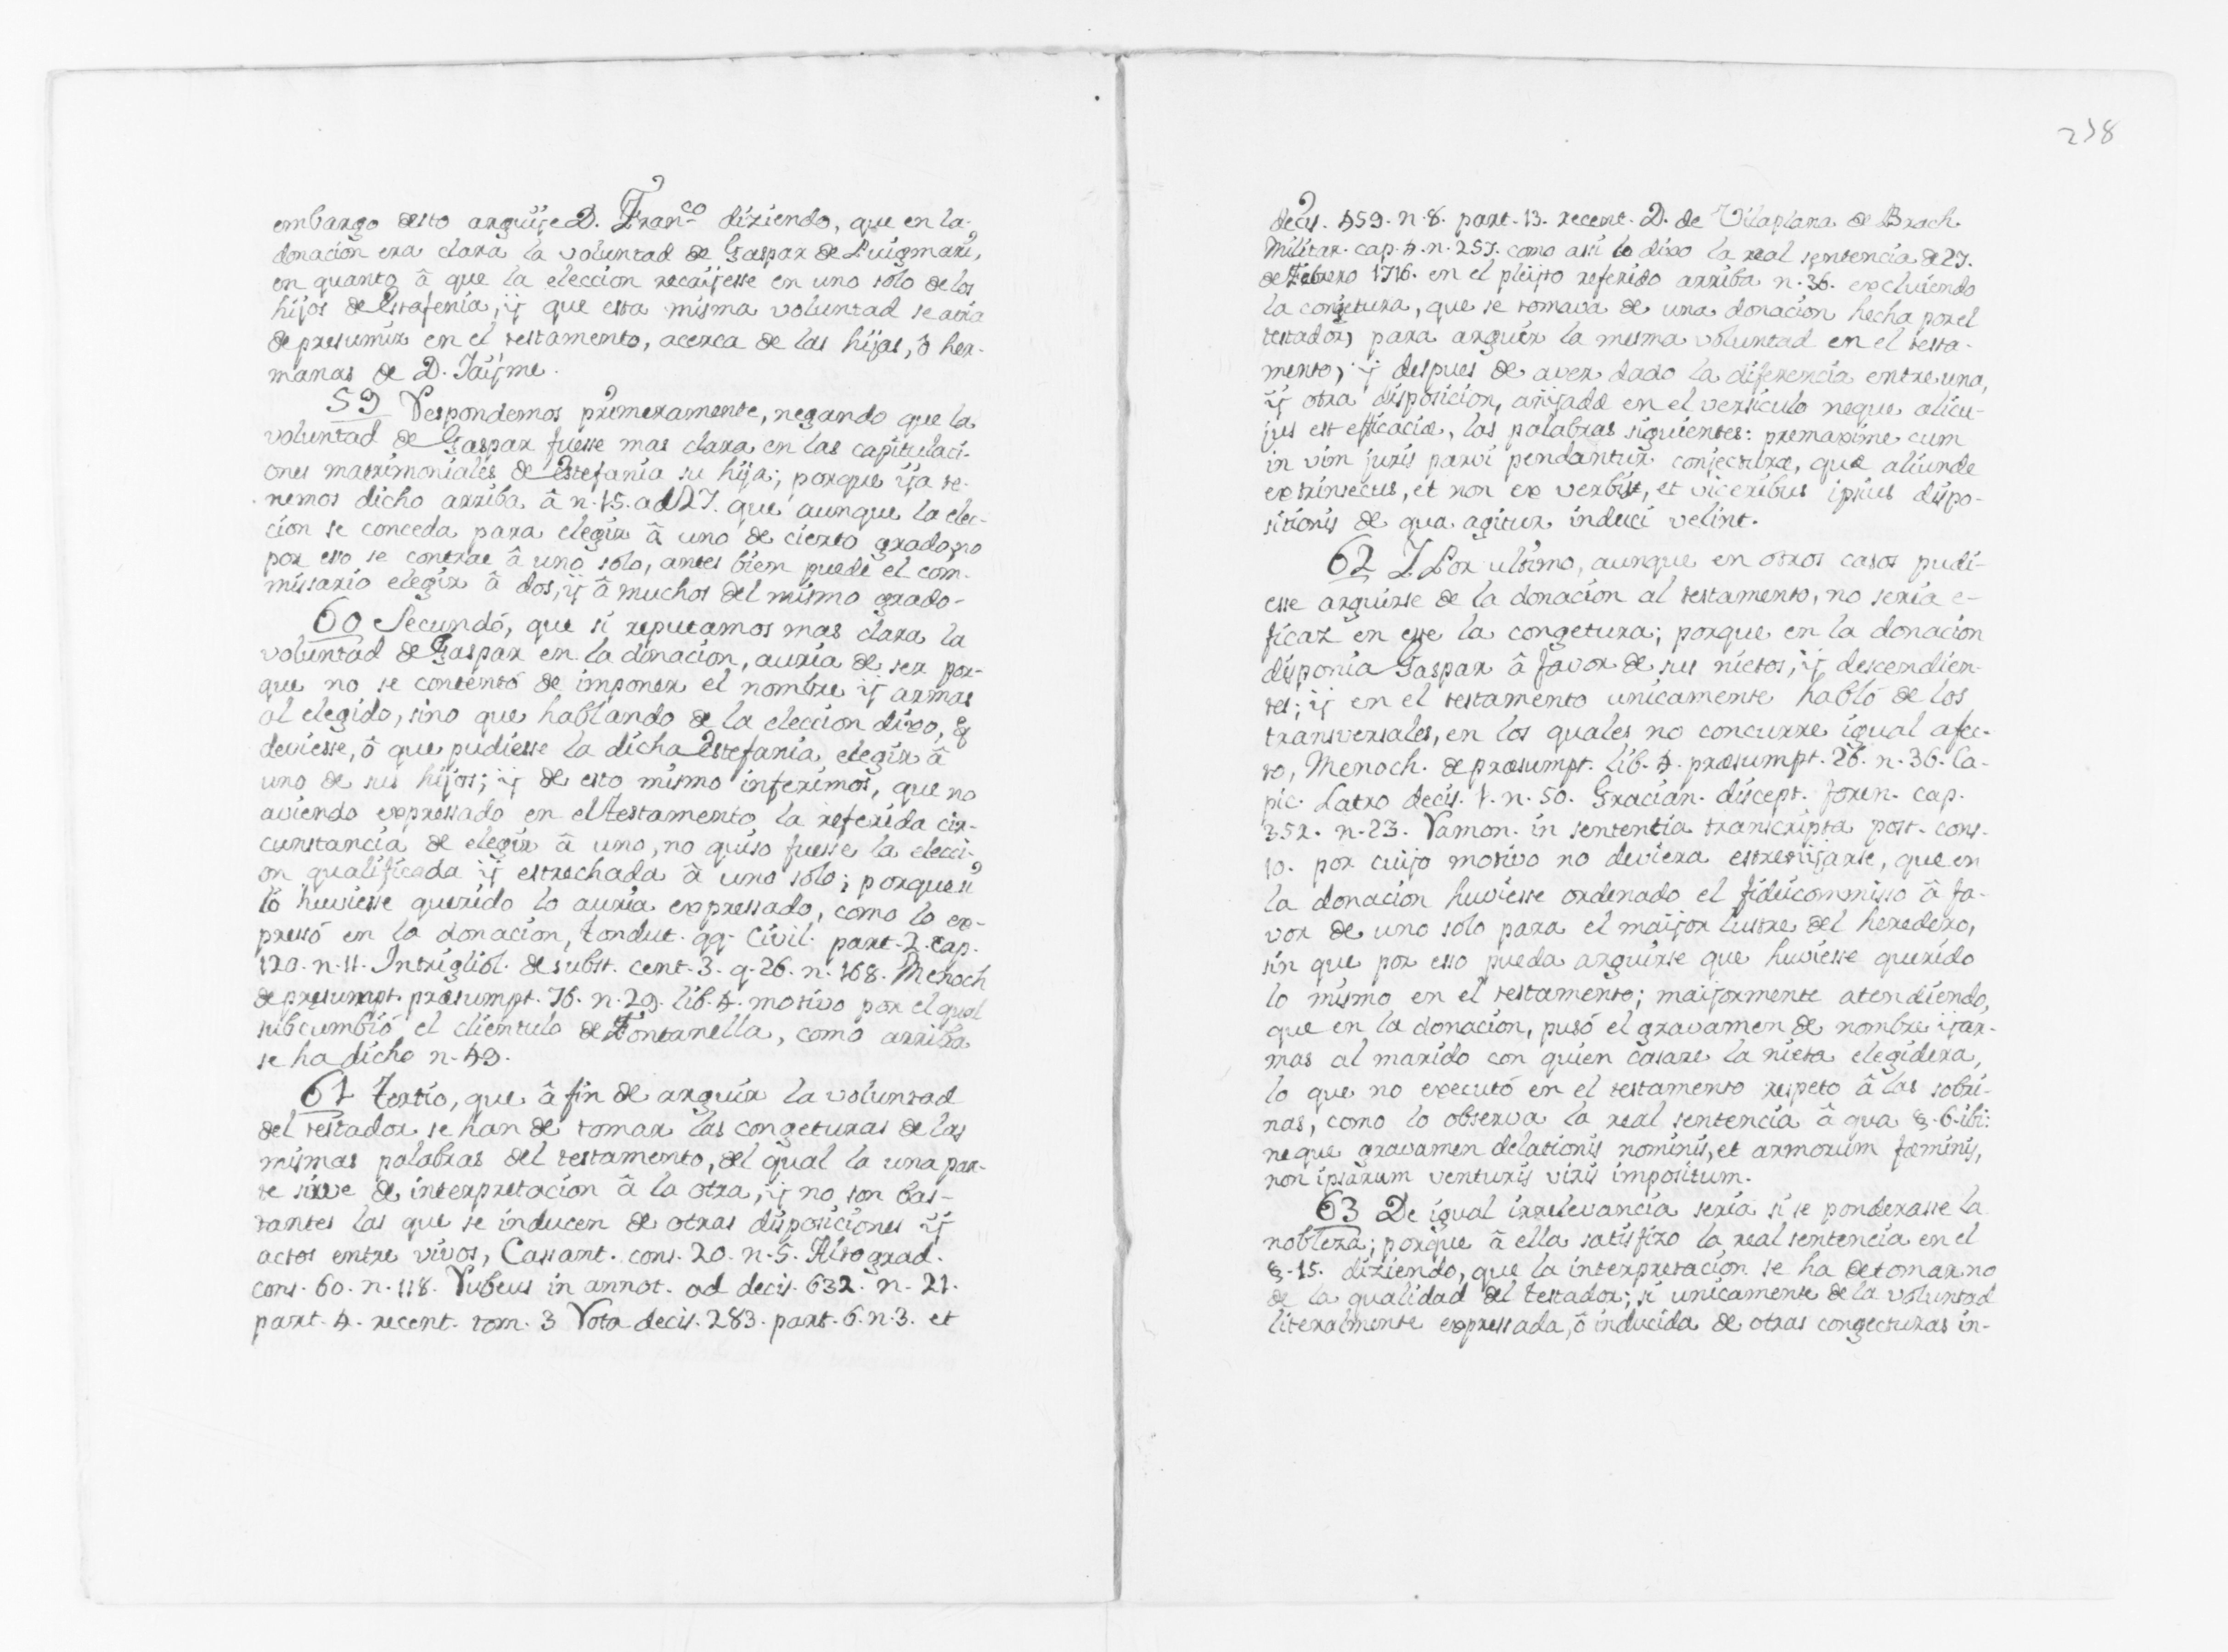 embargo desto arguÿe D. Fran.co diziendo, que en la
donacion era clara la voluntad de Gaspar de Puigmari,
en quanto â que la eleccion recaÿesse en uno solo de los
hijos de Estefenia, ÿ que esta misma voluntad se avia
de presumir en el testamento, acerca de las hijas, ô her-
manas de D. Jaÿme.
59 Respondemos primeramente, negando que la
voluntad de Gaspar fuesse mas clara en las capitulaci-
ones matrimoniales de Estefania su hija; porque ÿa te-
nemos dicho arriba â n. 15. ad 27. que aunque la elec-
cion se conceda para elegir â uno de cierto grado, no
por esso se contrae â uno solo, antes bien puede el com-
missario elegir â dos, ÿ â muchos del mismo grado.
60 Secundó, que si reputamos mas clara la
voluntad de Gaspar en la donacion, auria de ser por-
que no se contentó de imponer el nombre ÿ armas
al elegido, sino que hablando de la eleccion dixo, q̃
deviesse, ô que pudiesse la dicha Estefania elegir â
uno de sus hijos; ÿ de esto mismo inferimos, que no
aviendo expressado en el testamento la referida cir-
cunstancia de elegir â uno, no quiso fuesse la elecci-
on qualificada ÿ estrechada â uno solo; porque si
lo huviesse querido lo auria expressado, como lo ex-
pressó en la donacion, Tondut. qq. Civil. part. 2. cap.
120. n. 11. Intrigliol. de subst. cent. 3. q. 26. n. 168. Menoch
de præsumpt. præsumpt. 76. n. 29. lib. 4. motivo por el qual
subcumbió el clientulo de Fontanella, como arriba
se ha dicho n. 49.
61 Tertio, que â fin de arguir la voluntad
del testador se han de tomar las congeturas de las
mismas palabras del testamento, del qual la una par-
te sirve de interpretacion â la otra, ÿ no son bas-
tantes las que se inducen de otras disposiciones ÿ
actos entre vivos, Cassant. cons. 20. n. 5. Altograd.
cons. 60. n. 118. Rubeus in annot. ad decis. 632. n. 21.
part. 4. recent. tom. 3 Rota decis. 283. part. 6. n. 3. et
238
decis. 459. n. 8. part. 13. recent. D. de Vilaplana de Brach.
Militar. cap. 4. n. 257. como assi lo dixo la real sentencia de 27.
de Febrero 1716. en el pleÿto referido arriba n. 36. excluiendo
la congetura, que se tomava de una donacion hecha por el
testador, para arguir la mesma voluntad en el testa-
mento, ÿ despues de aver dado la diferencia entre una,
ÿ otra disposicion, añÿade en el versiculo neque alicu-
jus est efficaciæ, las palabras siguientes: premaxime cum
in vim juris parvi pendantur conjecturæ, quæ aliunde
extrinsectus, et non ex verbis, et viceribus ipsius dispo-
sitionis de qua agitur induci velint.
62 Y Por ultimo, aunque en otros casos pudi-
esse arguirse de la donacion al testamento, no seria e-
ficaz en esse la congetura; porque en la donacion
disponia Gaspar â favor de sus nietos, ÿ descendien-
tes; ÿ en el testamento unicamente habló de los
transversales, en los quales no concurre igual afec-
to, Menoch. de præsumpt. lib. 4. præsumpt. 26. n. 36. Ca-
pic. Latro decis. 1. n. 50. Gracian. discept. foren. cap.
352. n. 23. Ramon. in sententia transcripta post. cons.
10. por cuÿo motivo no deviera estreñÿarse, que en
la donacion huviesse ordenado el fideicommisso â fa-
vor de uno solo para el maÿor lustre del heredero,
sin que por esso pueda arguirse que huviesse querido
lo mismo en el testamento; maÿormente atendiendo,
que en la donacion, pusó el gravamen de nombre ÿ ar-
mas al marido con quien casare la nieta elegidera,
lo que no executó en el testamento respeto â las sobri-
nas, como lo observa la real sentencia â qua §. 6. ibi:
neque gravamen delationis nominis, et armorum fæminis,
non ipsarum venturis viris impositum.
63 De igual irrelevancia seria si se ponderasse la
nobleza; porque â ella satisfizo la real sentencia en el
§. 15. diziendo, que la interpretacion se ha de tomar no
de la qualidad del testador; si unicamente de la voluntad
literalmente expressada, ô inducida de otras congecturas in-